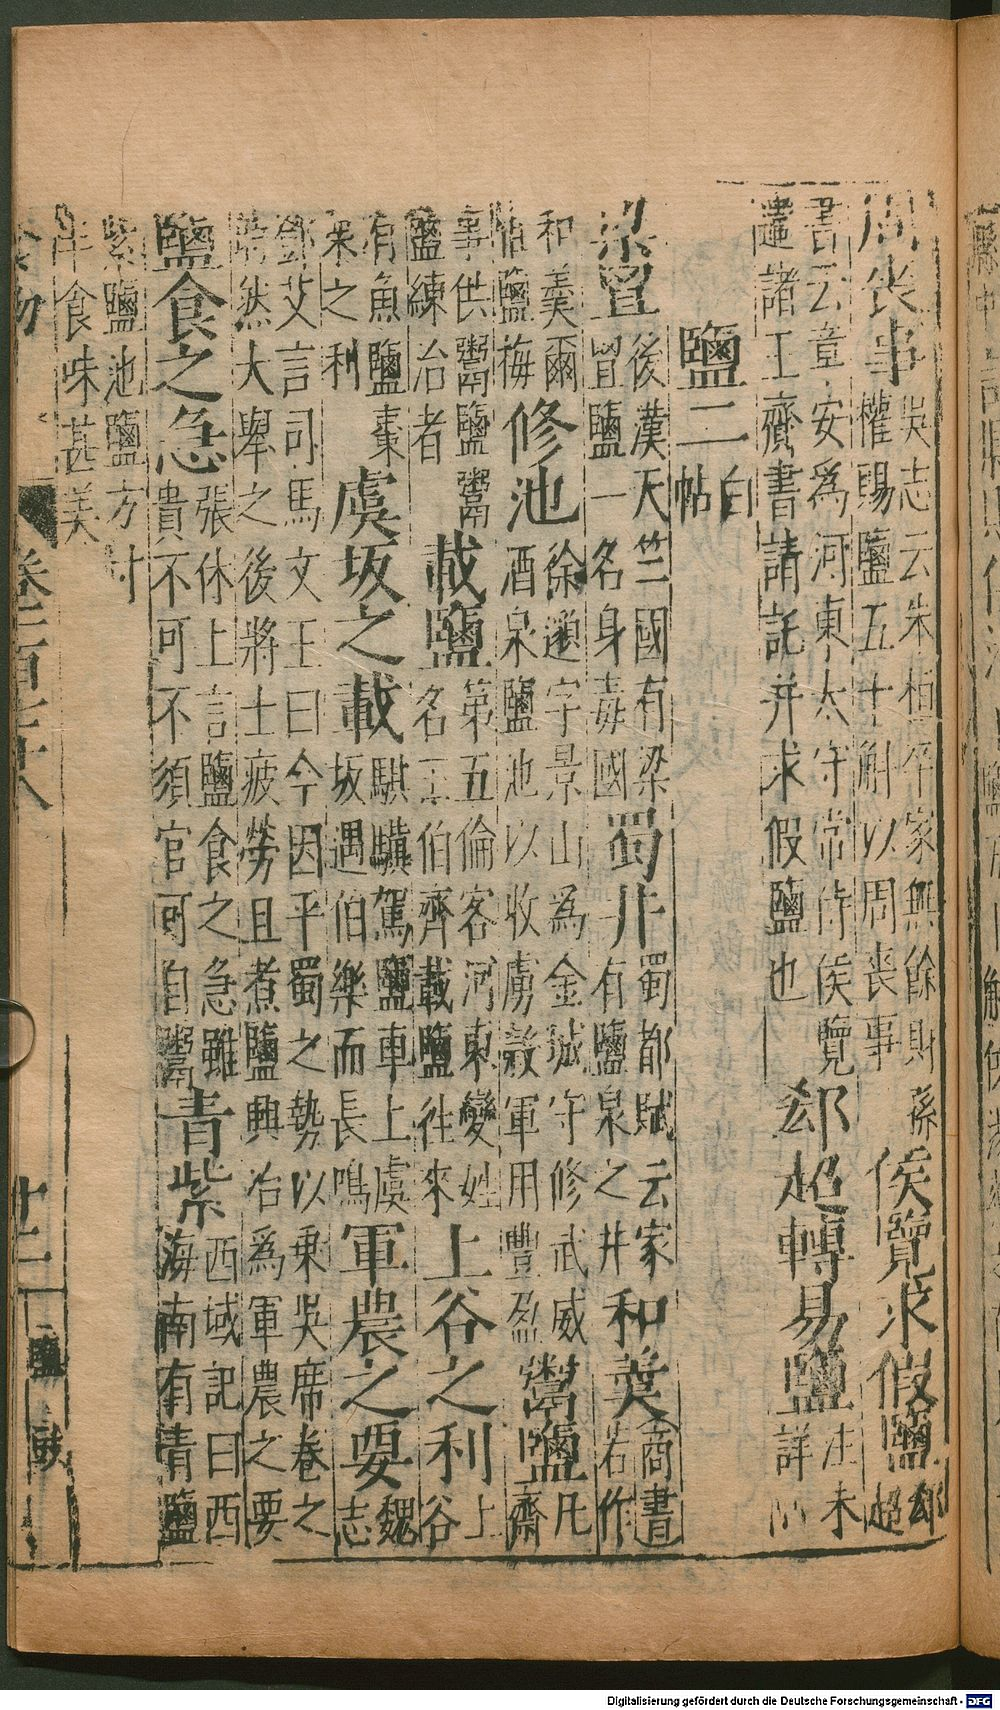 周喪事 吳志云朱桓卒家無餘財孫 權賜鹽五十斛以周喪事 侯覽求假鹽 郄 超
書云章安為河東太守常侍侯覽 遣諸王齎書請託并求假鹽也 郄超轉易鹽 注未 詳
鹽二 白 帖
梁㽞 後漢天竺國有梁 㽞鹽一名身毒國 蜀井 蜀都賦云家 有鹽泉之井 和羹 商書 若作
和羹爾 惟鹽梅 修池 徐邈字景山為金城守修武威 酒泉鹽池以收虜穀軍用豐盈 鬻鹽 凡 齊
事供鬻鹽鬻 鹽練治者 載鹽 第五倫客河東變姓 名王伯齊載鹽往來 上谷之利 上 谷
有魚鹽棗 栗之利 虞坂之載 騏驥駕鹽車上虞 坂遇伯樂而長鳴 軍農之要 魏 志
鄧艾言司馬文王曰今因平蜀之勢以乘吳席卷之 勢然大舉之後將士疲勞且煮鹽興冶為軍農之要
鹽食之急 張休上言鹽食之急雖 貴不可不須官可自鬻 青紫 西域記曰西 海南有青鹽
紫鹽池鹽方寸 半食味甚美
食物 卷 廿二 鹽 豉
Digitalisierung gefördert durch die Deutsche Forschungsgemeinschaft - DFG